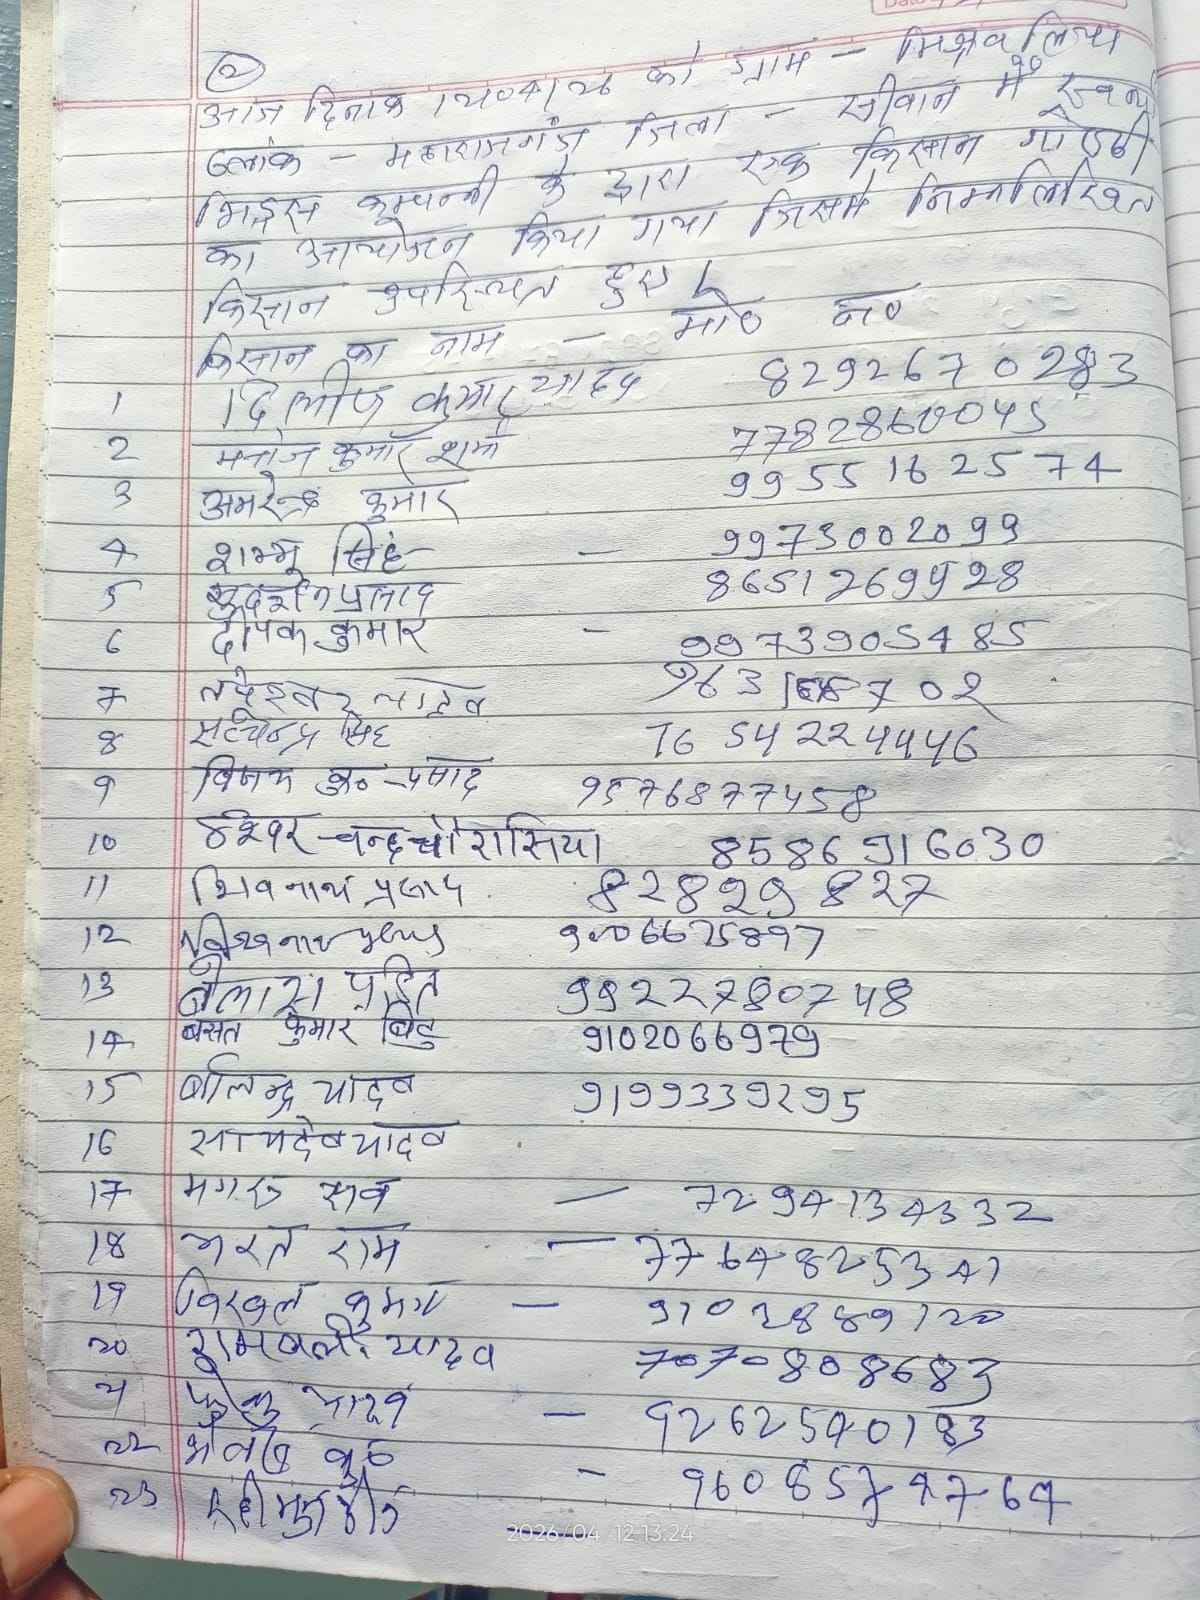 ②
आज दिनांक 12/04/26 को ग्राम - मिश्रवलिया
ब्लॉक - महाराजगंज जिला - सीवान में
कम्पनी के द्वारा एक किसान गोष्ठी
का आयोजन किया गया जिसमें निम्नलिखित
किसान उपस्थित हुए।
किसान का नाम - मो० न०
1 दिलीप कुमार यादव 8292670283
2 मनोज कुमार शर्मा 7782860045
3 अमरेन्द्र कुमार 9955162574
4 शम्भू सिंह - 9973002099
5 सुदर्शन प्रसाद 8651269928
6 दीपक कुमार - 9973905485
7
8 सत्येन्द्र सिंह 7654224446
9 विजय कु० प्रसाद 9576877458
10 ईश्वर चन्द चौरासिया 8586916030
11 शिवनाथ प्रसाद 82829827
12 विश्वनाथ 9006675897
13 कैलाश पंडित 9922780748
14 बसंत कुमार बिट्टु 9102066979
15 बालिन्द्र यादव 9199339295
16 सत्यदेव यादव
17 मगरु साव - 7294134332
18 भरत राम - 7764825341
19 विरबल कुमार - 9102889120
20 रामबली यादव 7070808683
21 - 9262590183
22
23 - 9608574764
2026/04 12:13:24